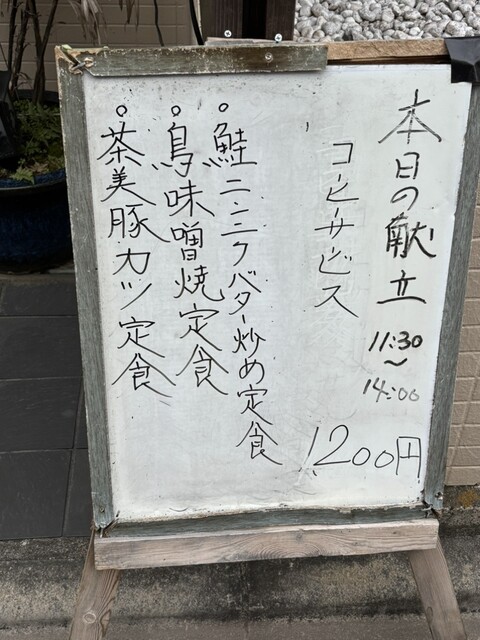 本日の献立
11:30
〜
14:00
コーヒーサービス
1200円
○鮭ニンニクバター炒め定食
○鳥味噌焼定食
○茶美豚カツ定食